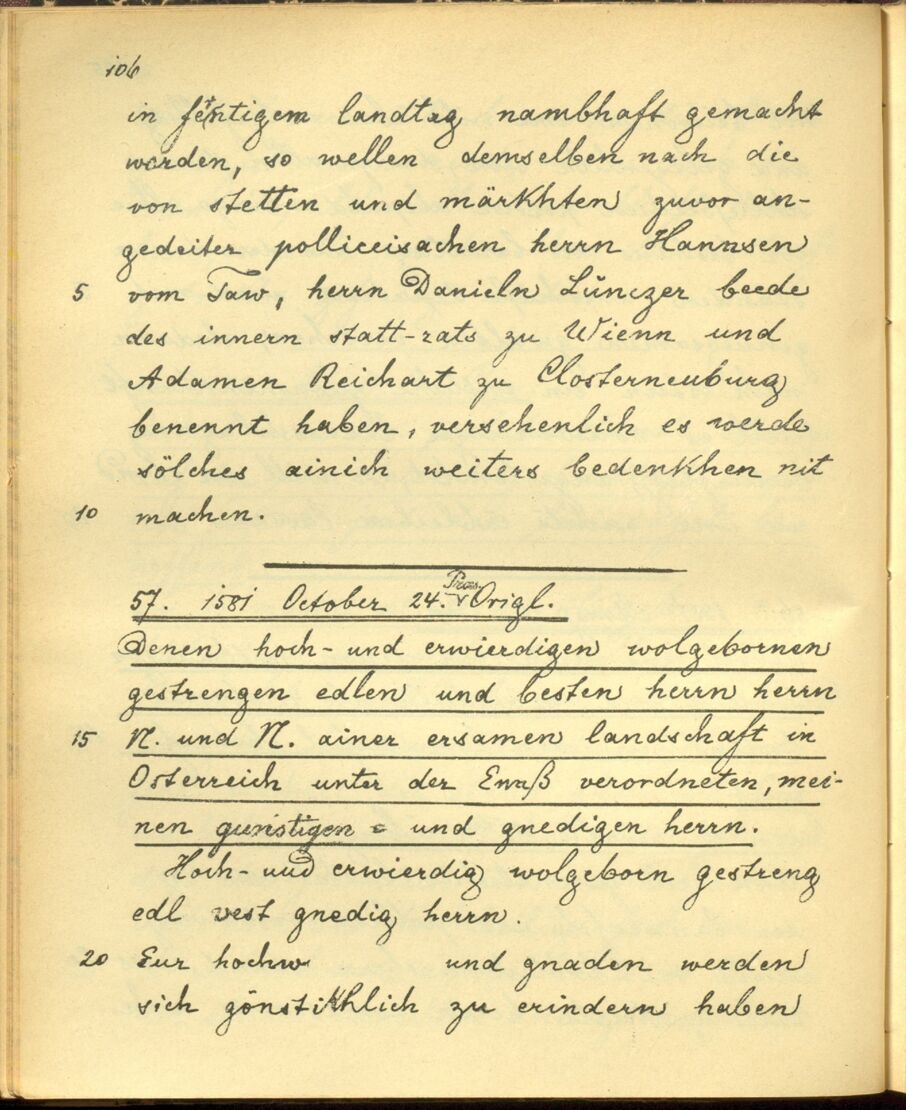 106
in fertigem landtag nambhaft gemacht
worden, so wellen demselben nach die
von stetten und märkhten zuvor an-
gedeiter polliceisachen herrn Hannsen
5 vom Taw, herrn Danieln Lünczer beede
des innern statt-rats zu Wienn und
Adamen Reichart zu Closterneuburg
benennt haben, versehenlich es werde
sölches ainich weiters bedenkhen nit
10 machen.
57. 1581 October 24. Praes. Origl.
Denen hoch- und erwierdigen wolgebornen
gestrengen edlen und besten herrn herrn
15 N. und N. ainer ersamen landschaft in
Österreich unter der Ennß verordneten, mei-
nen gunstigen = und gnedigen herrn.
Hoch- und erwierdig wolgeborn gestreng
edl vest gnedig herrn.
20 Eur hochw und gnaden werden
sich gönstikhlich zu erindern haben